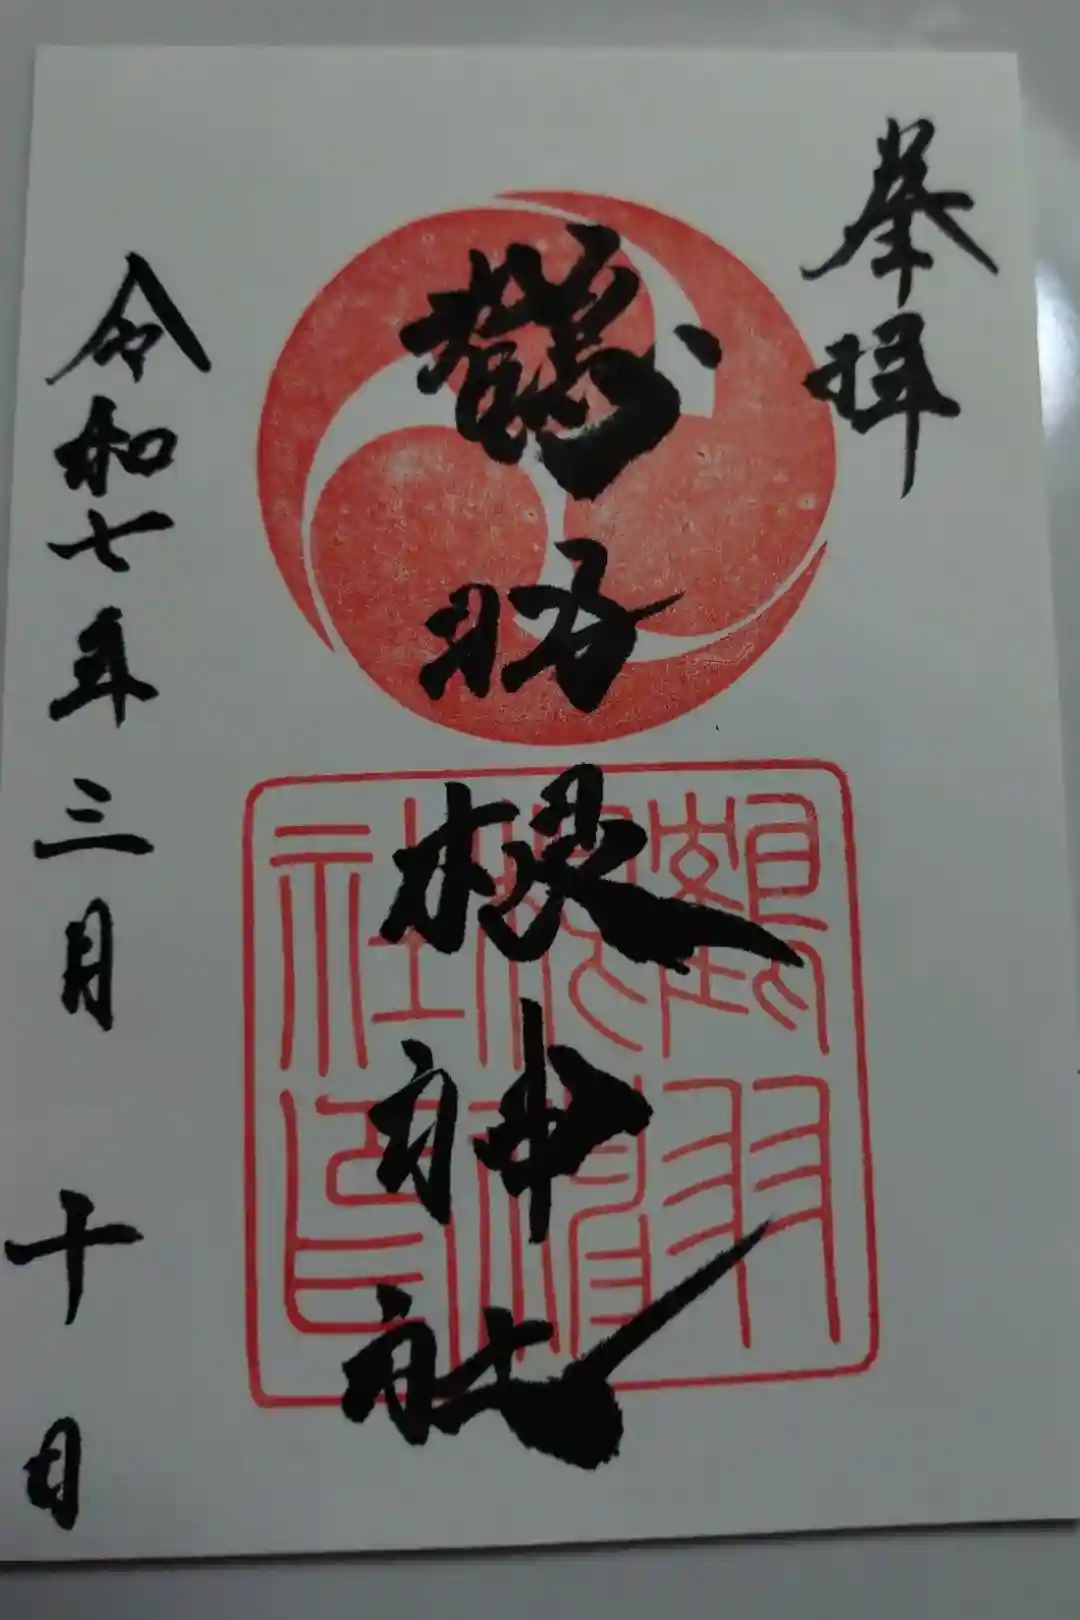 奉拝
鶴羽根神社
令和七年三月十日
鶴羽
根神
社印